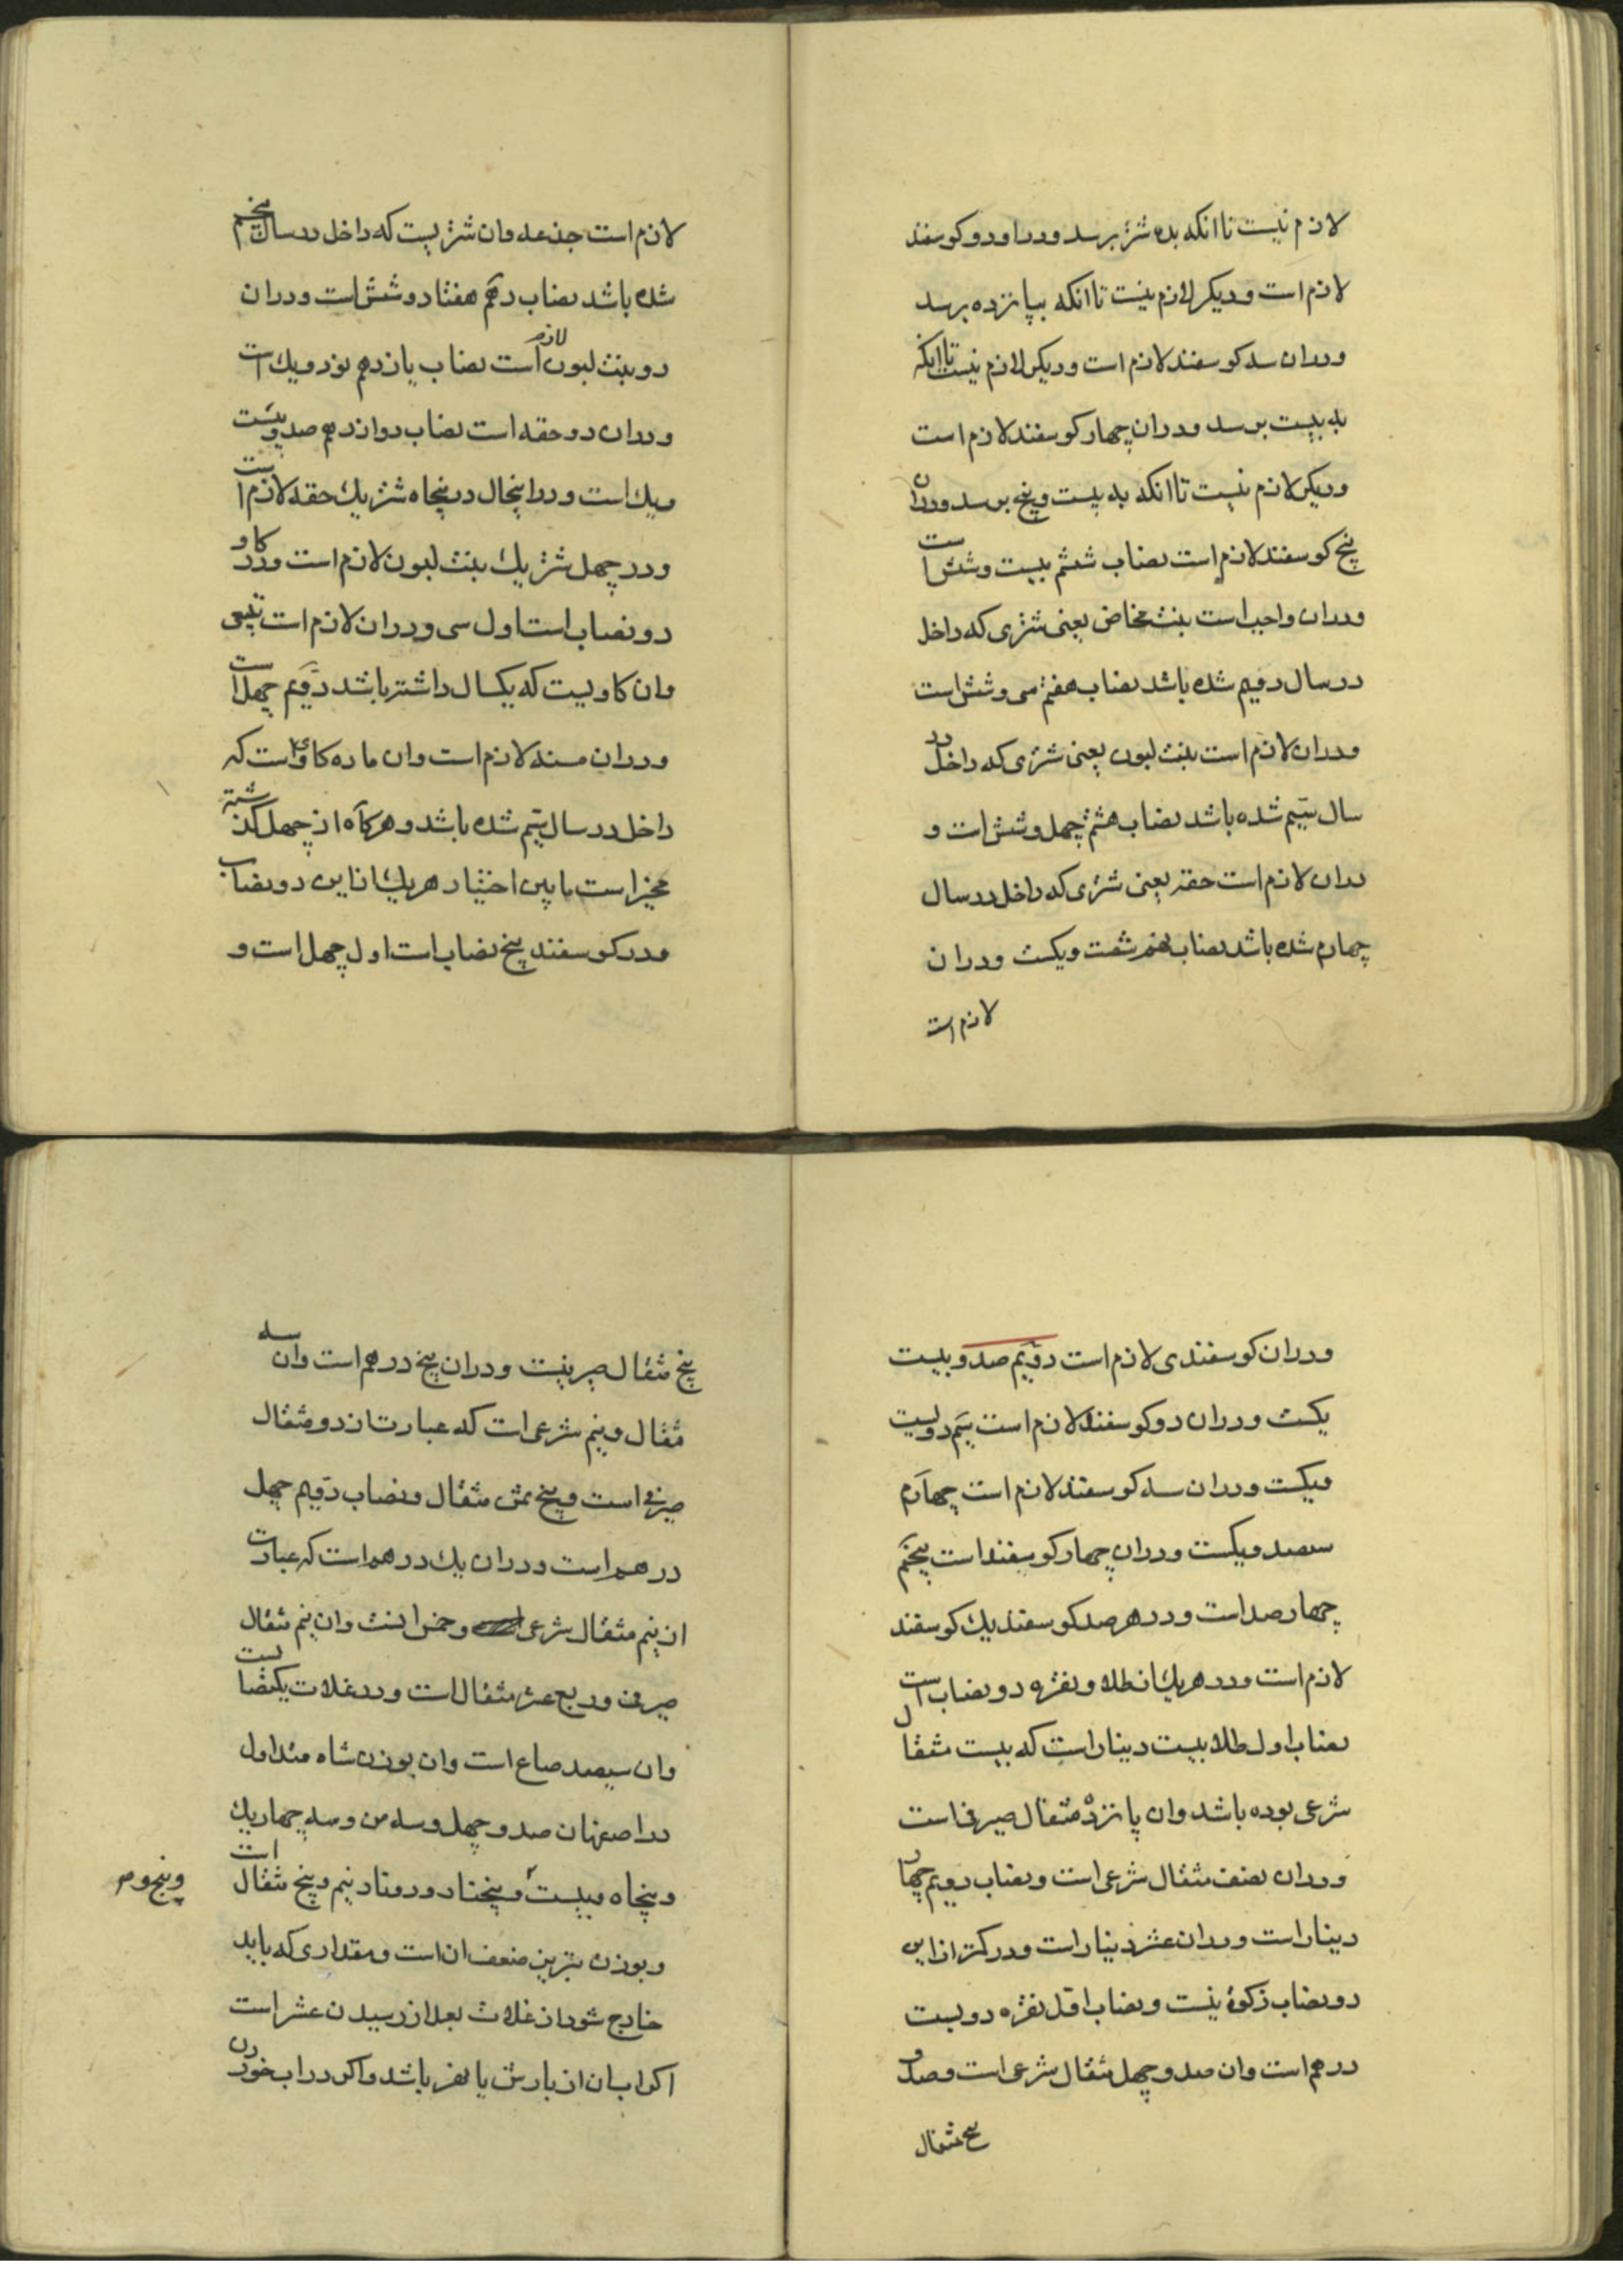 لازم نیست تا انکه بده شتر برسد و در او دو کوسفند
لازم است و دیکر لازم نیست تا انکه بپانزده برسد
و در ان سه کوسفند لازم است و دیکر لازم نیست تا انکه
به بیست برسد و در ان چهار کوسفند لازم است
و دیکر لازم نیست تا انکه به بیست و پنج برسد و در ان
پنج کوسفند لازم است نصاب ششم بیست و شش است
و در ان واجب است بنت مخاض یعنی شتری که داخل
در سال دویم شده باشد نصاب هفتم سی و شش است
و در ان لازم است بنت لبون یعنی شتری که داخل در
سال سیم شده باشد نصاب هشتم چهل و شش است و
در ان لازم است حقه یعنی شتری که داخل در سال
چهارم شده باشد نصاب نهم شصت و یکست و در ان
لازم است
لازم است جذعه و ان شتریست که داخل در سال پنجم
شده باشد نصاب دهم هفتاد و شش است و در ان
دو بنت لبون لازم است نصاب یازدهم نود و یک است
و در ان دو حقه است نصاب دوازدهم صد و بیست
و یک است و در اینحال در پنجاه شتر یک حقه لازم است
و در چهل شتر یک بنت لبون لازم است و در کاو
دو نصاب است اول سی و در ان لازم است تبیعی
و ان کاویست که یکسال داشته باشد دویم چهل است
و در ان مسنه لازم است و ان ماده کاویست که
داخل در سال سیم شده باشد و هر کاه از چهل کذشته
مخیر است مابین اختیار هر یک از این دو نصاب
و در کوسفند پنج نصاب است اول چهل است و
و در ان کوسفندی لازم است دویم صد و بیست
یکست و در ان دو کوسفند لازم است سیم دویست
و یکست و در ان سه کوسفند لازم است چهارم
سیصد و یکست و در ان چهار کوسفند است پنجم
چهار صد است و در هر صد کوسفند یک کوسفند
لازم است و در هر یک از طلا و نقره دو نصاب است
نصاب اول طلا بیست دینار است که بیست مثقال
شرعی بوده باشد و ان پانزده مثقال صیرفی است
و در ان نصف مثقال شرعی است و نصاب دویم چهار
دینار است و در ان عشر دینار است و در کمتر از این
دو نصاب زکوة نیست و نصاب اول نقره دویست
درهم است و ان صد و چهل مثقال شرعی است و صد و
پنج مثقال
پنج مثقال صیرفیست و در ان پنج درهم است و ان سه
مثقال و نیم شرعی است که عبارت از دو مثقال
صیرفی است و پنج ثمن مثقال و نصاب دویم چهل
درهم است و در ان یک درهم است که عبارت
از نیم مثقال شرعی و خمس انست و ان نیم مثقال
صیرفی و ربع عشر مثقال است و در غلات یکنصابست
و ان سیصد صاع است و ان بوزن شاه متداول
در اصفهان صد و چهل و سه من و سه چهار یک
و پنجاه و بیست و پنجتا دو دو نیم و پنج مثقال است
و پنج درم
و بوزن تبریز ضعف ان است و مقداری که باید
خارج شود از غلات بعد از رسیدن عشر است
اکر اب ان از بارش یا نهر باشد و اکر در اب خوردن